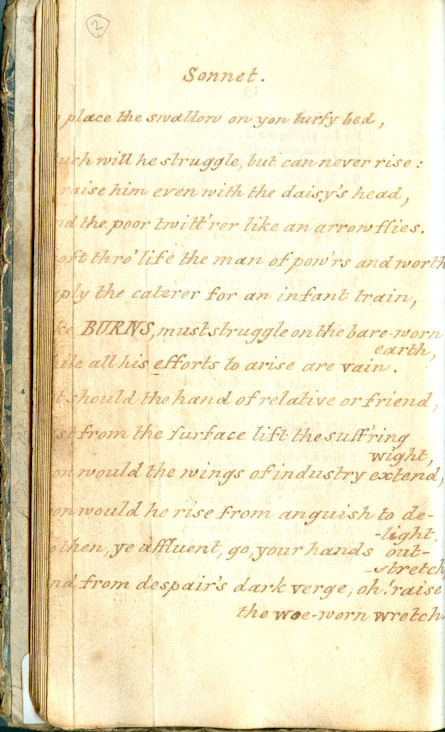 2
Sonnet.
place the swallow on yon turfy bed,
uch will he struggle, but can never rise:
raise him even with the daisy's head,
nd the poor twitt'rer like an arrow flies.
oft thro' life the man of pow'rs and worth
ply the caterer for an infant train,
ke BURNS, must struggle on the bare-worn
earth,
ile all his efforts to arise are vain.
t should the hand of relative or friend,
st from the surface lift the suff'ring
wight,
on would the wings of industry extend,
on would he rise from anguish to de-
-light.
then, ye affluent, go, your hands out-
-stretch
nd from despair's dark verge, oh! raise
the woe-worn wretch.